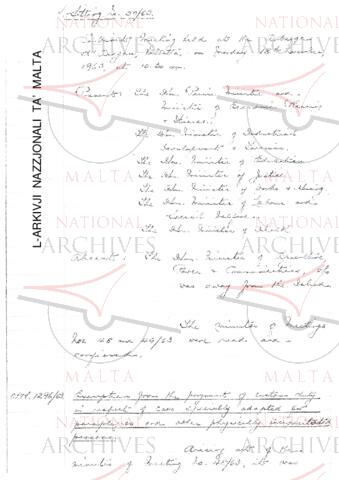 Sitting No. 50/63.
Cabinet Meeting held at the Auberge
d'Aragon, Valletta, on Monday,
1963, at 10.30 am.
Present: The Hon. Prime Minister and
Minister of Economic Planning
& Finance.
The Hon. Minister of Industrial
Development & Tourism.
The Hon. Minister of Education
The Hon. Minister of Justice
The Hon. Minister of Works & Housing.
The Hon. Minister of Labour and
Social Welfare.
The Hon. Minister of Health
Absent: The Hon. Minister of
Power & Communications, who
was away from the Island.
The minutes of Meetings
Nos 48 and 49/63 were read and
confirmed.
OPM. 1296/63.
Exemption from the payment of customs duty
in respect of cars specially adapted for
paraplegics and other physically incapacitated
persons.
Arising out of the
minutes of Meeting No. 48/63, it was
L-ARKIVJI NAZZJONALI TA' MALTA
MALTA
NATIONAL
ARCHIVES